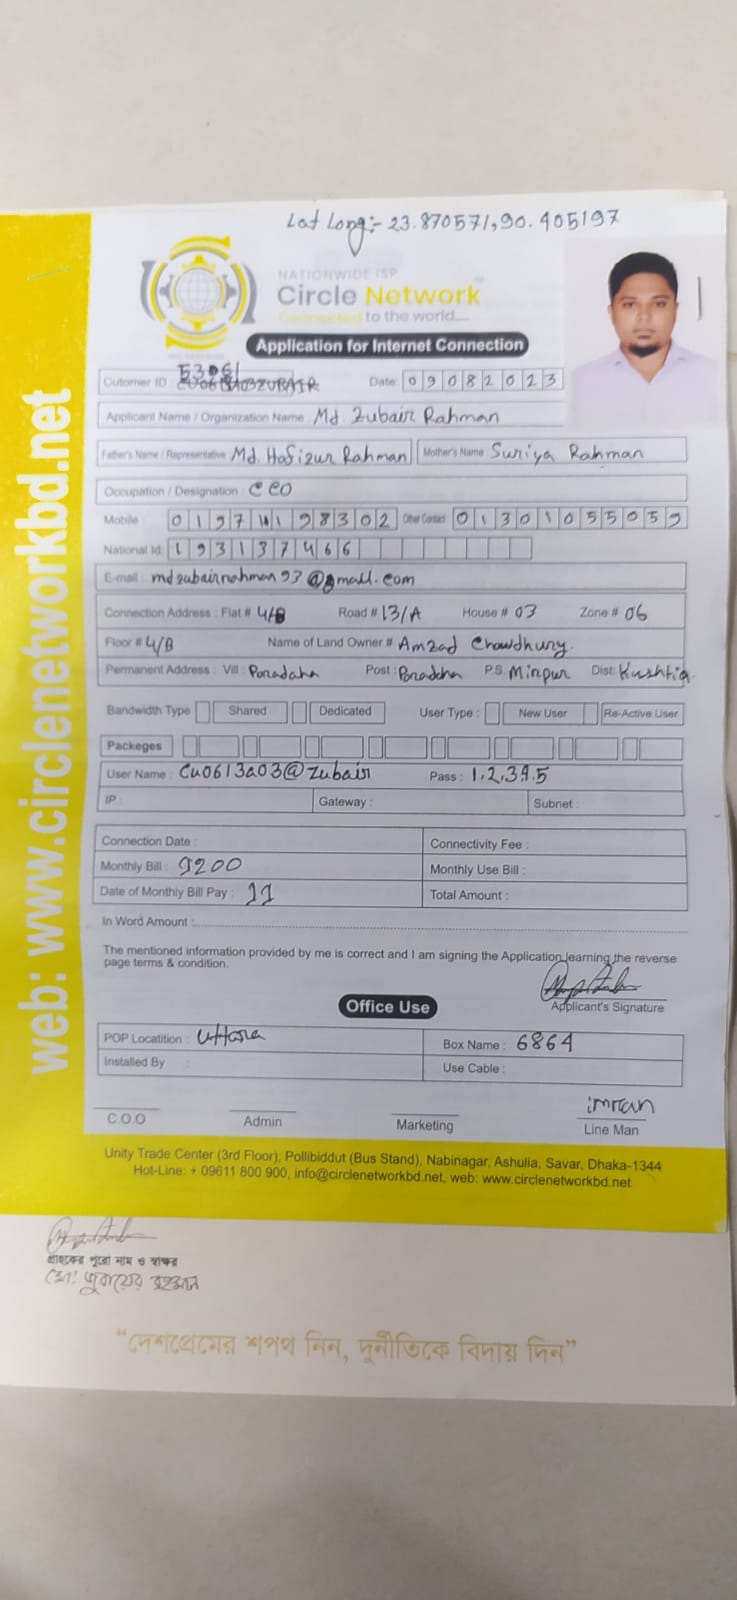 Lat Long:- 23.870571,90.405197
NATIONWIDE ISP
Circle Network
Connected to the world....
Application for Internet Connection
Cutomer ID : Date: 09082023
Applicant Name / Organization Name : Md. Zubair Rahman
Father's Name / Representative Md. Hafizur Rahman Mother's Name Suriya Rahman
Occupation / Designation : CEO
Mobile : 01971198302 Other Contact 01301055059
National Id: 193137466
E-mail : mdzubairrahman93@gmail.com
Connection Address : Flat # 4/B Road # 13/A House # 03 Zone # 06
Floor # 4/B Name of Land Owner # Amzad Chowdhury.
Permanent Address : Vill : Poradaha Post : P.S. Mirpur Dist: Kushtia
Bandwidth Type Shared Dedicated User Type : New User Re-Active User
Packeges
User Name : cu0613a03@zubair Pass : 1.2.3.4.5
IP : Gateway : Subnet :
Connection Date : Connectivity Fee :
Monthly Bill : 1200 Monthly Use Bill :
Date of Monthly Bill Pay : 11 Total Amount :
In Word Amount :
The mentioned information provided by me is correct and I am signing the Application learning the reverse
page terms & condition.
Applicant's Signature
Office Use
POP Locatition : Uttara Box Name : 6864
Installed By : Use Cable :
imran
C.O.O Admin Marketing Line Man
Unity Trade Center (3rd Floor), Pollibiddut (Bus Stand), Nabinagar, Ashulia, Savar, Dhaka-1344
Hot-Line: + 09611 800 900, info@circlenetworkbd.net, web: www.circlenetworkbd.net
web: www.circlenetworkbd.net
গ্রাহকের পুরো নাম ও স্বাক্ষর
মোঃ জুবায়ের রহমান
“দেশপ্রেমের শপথ নিন, দুর্নীতিকে বিদায় দিন”